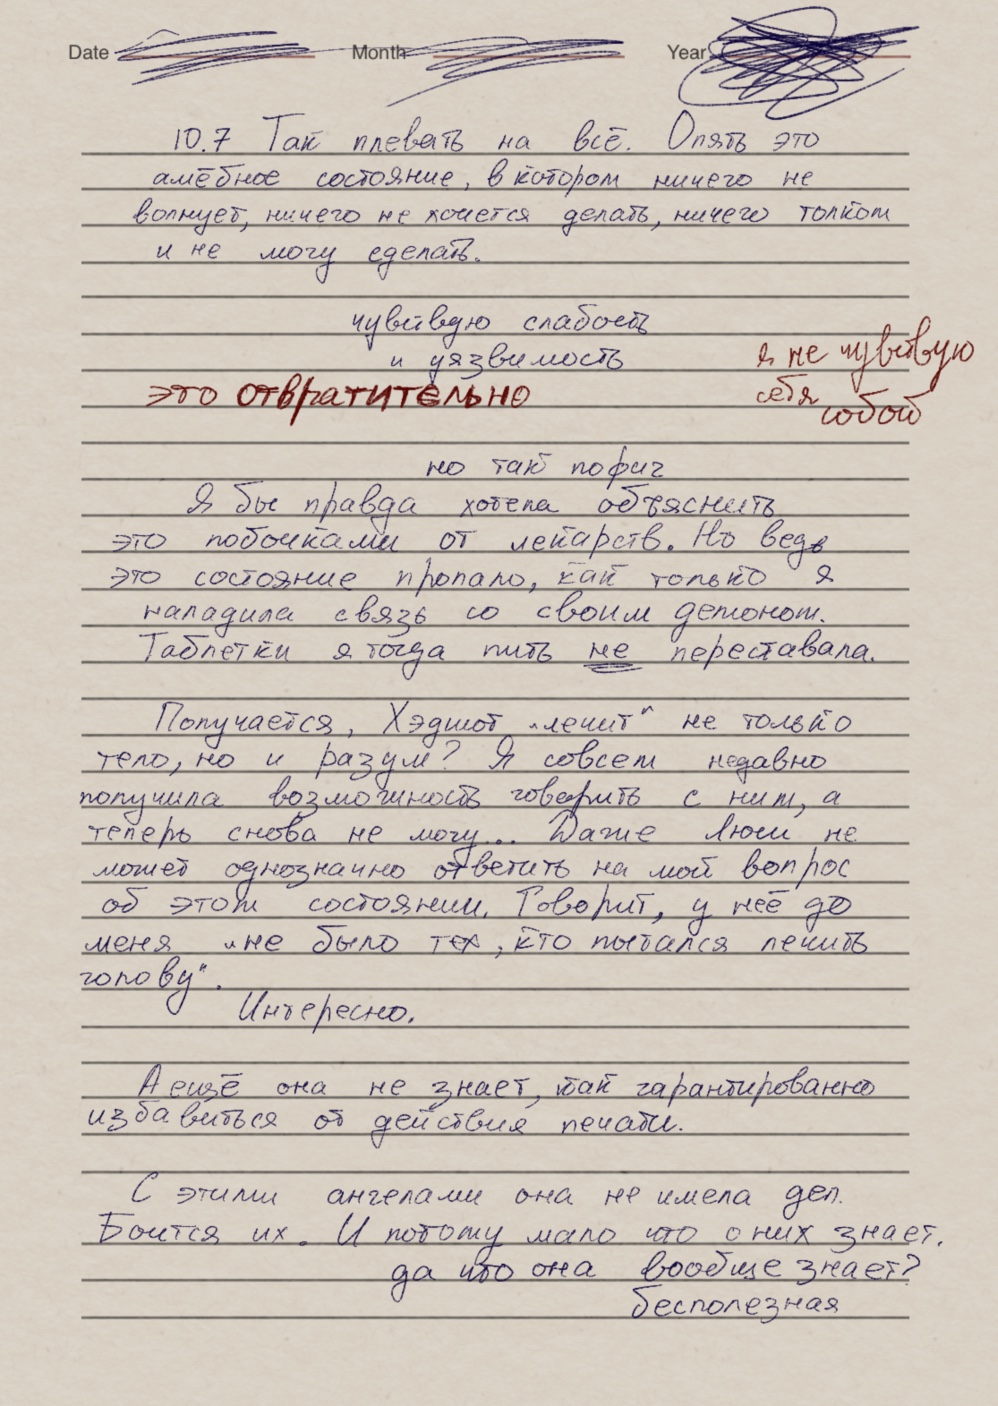 Date Month Year
10.7 Так плевать на всё. Опять это
амёбное состояние, в котором ничего не
волнует, ничего не хочется делать, ничего толком
и не могу сделать.
чувствую слабость
и уязвимость
я не чувствую
это отвратительно
себя
собой
но так пофиг
Я бы правда хотела объяснить
это побочками от лекарств. Но ведь
это состояние пропало, как только я
наладила связь со своим демоном.
Таблетки я тогда пить не переставала.
Получается, Хэдшот „лечит“ не только
тело, но и разум? Я совсем недавно
получила возможность говорить с ним, а
теперь снова не могу... Даже Люси не
может однозначно ответить на мой вопрос
об этом состоянии. Говорит, у неё до
меня „не было тех, кто пытался лечить
голову“.
Интересно.
А ещё она не знает, как гарантированно
избавиться от действия печати.
С этими ангелами она не имела дел.
Боится их. И потому мало что о них знает.
да что она вообще знает?
бесполезная